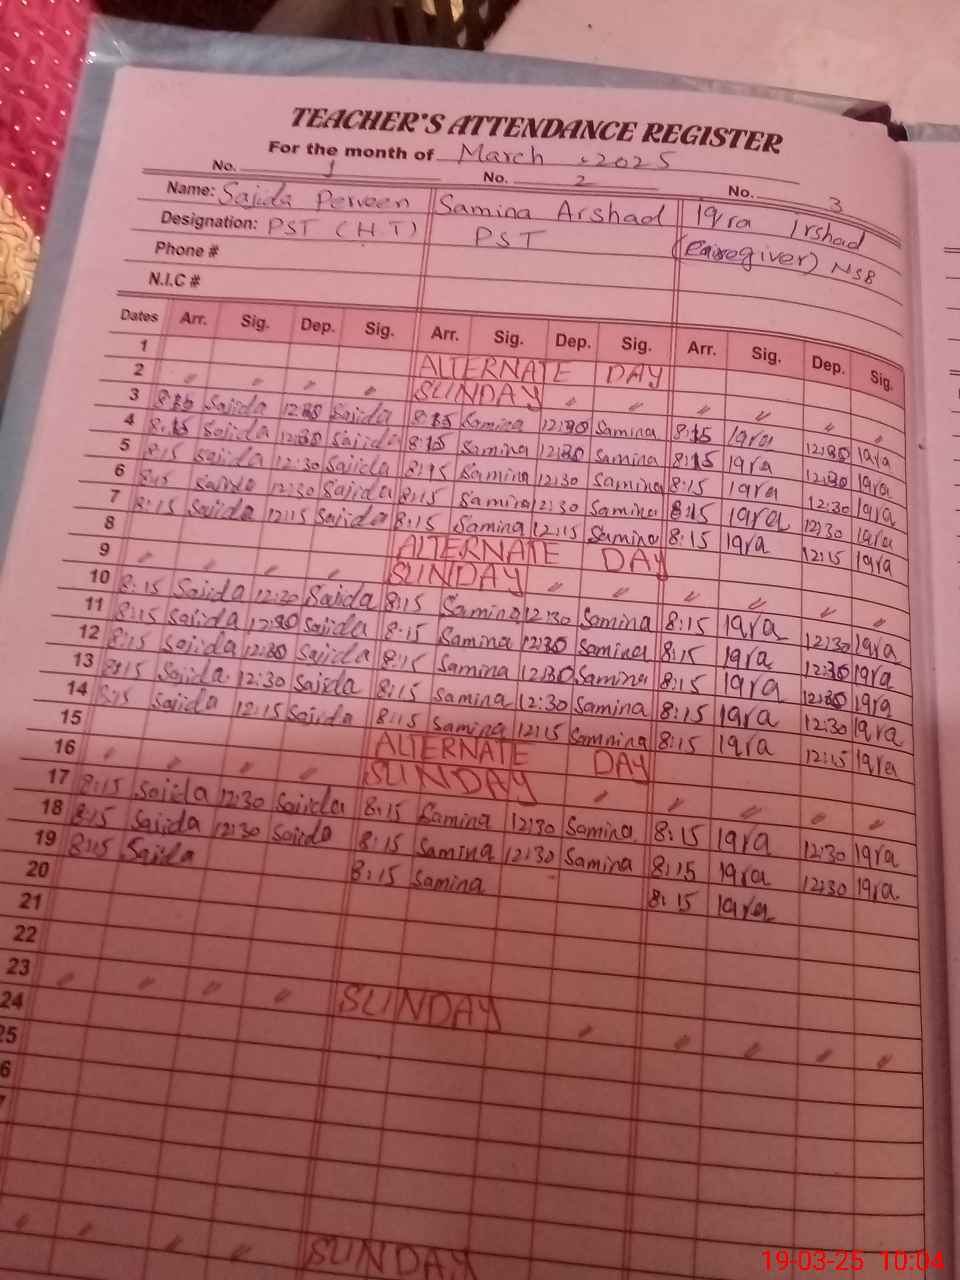 TEACHER'S ATTENDANCE REGISTER
For the month of March, 2025
No. 1 No. 2 No. 3
Name: Sajida Perveen Samina Arshad Iqra Irshad
Designation: PST (H.T) PST (Caregiver) NSB
Phone #
N.I.C #
Dates Arr. Sig. Dep. Sig. Arr. Sig. Dep. Sig. Arr. Sig. Dep. Sig.
1 ALTERNATE DAY
2 〃 〃 〃 〃 SUNDAY 〃 〃 〃 〃 〃 〃
3 8:15 Sajida 12:30 Sajida 8:15 Samina 12:30 Samina 8:15 Iqra 12:30 Iqra
4 8:15 Sajida 12:30 Sajida 8:15 Samina 12:30 Samina 8:15 Iqra 12:30 Iqra
5 8:15 Sajida 12:30 Sajida 8:15 Samina 12:30 Samina 8:15 Iqra 12:30 Iqra
6 8:15 Sajida 12:30 Sajida 8:15 Samina 12:30 Samina 8:15 Iqra 12:30 Iqra
7 8:15 Sajida 12:15 Sajida 8:15 Samina 12:15 Samina 8:15 Iqra 12:15 Iqra
8 ALTERNATE DAY
9 〃 〃 〃 〃 SUNDAY 〃 〃 〃 〃 〃 〃
10 8:15 Sajida 12:30 Sajida 8:15 Samina 12:30 Samina 8:15 Iqra 12:30 Iqra
11 8:15 Sajida 12:30 Sajida 8:15 Samina 12:30 Samina 8:15 Iqra 12:30 Iqra
12 8:15 Sajida 12:30 Sajida 8:15 Samina 12:30 Samina 8:15 Iqra 12:30 Iqra
13 8:15 Sajida 12:30 Sajida 8:15 Samina 12:30 Samina 8:15 Iqra 12:30 Iqra
14 8:15 Sajida 12:15 Sajida 8:15 Samina 12:15 Samnina 8:15 Iqra 12:15 Iqra
15 ALTERNATE DAY
16 〃 〃 〃 〃 SUNDAY 〃 〃 〃 〃 〃
17 8:15 Sajida 12:30 Sajida 8:15 Samina 12:30 Samina 8:15 Iqra 12:30 Iqra
18 8:15 Sajida 12:30 Sajida 8:15 Samina 12:30 Samina 8:15 Iqra 12:30 Iqra
19 8:15 Sajida 8:15 Samina 8:15 Iqra
20
21
22
23 〃 〃 〃 〃 SUNDAY 〃 〃 〃 〃 〃
24
25
6
7
〃 〃 〃 〃 SUNDAY
19-03-25 10:04